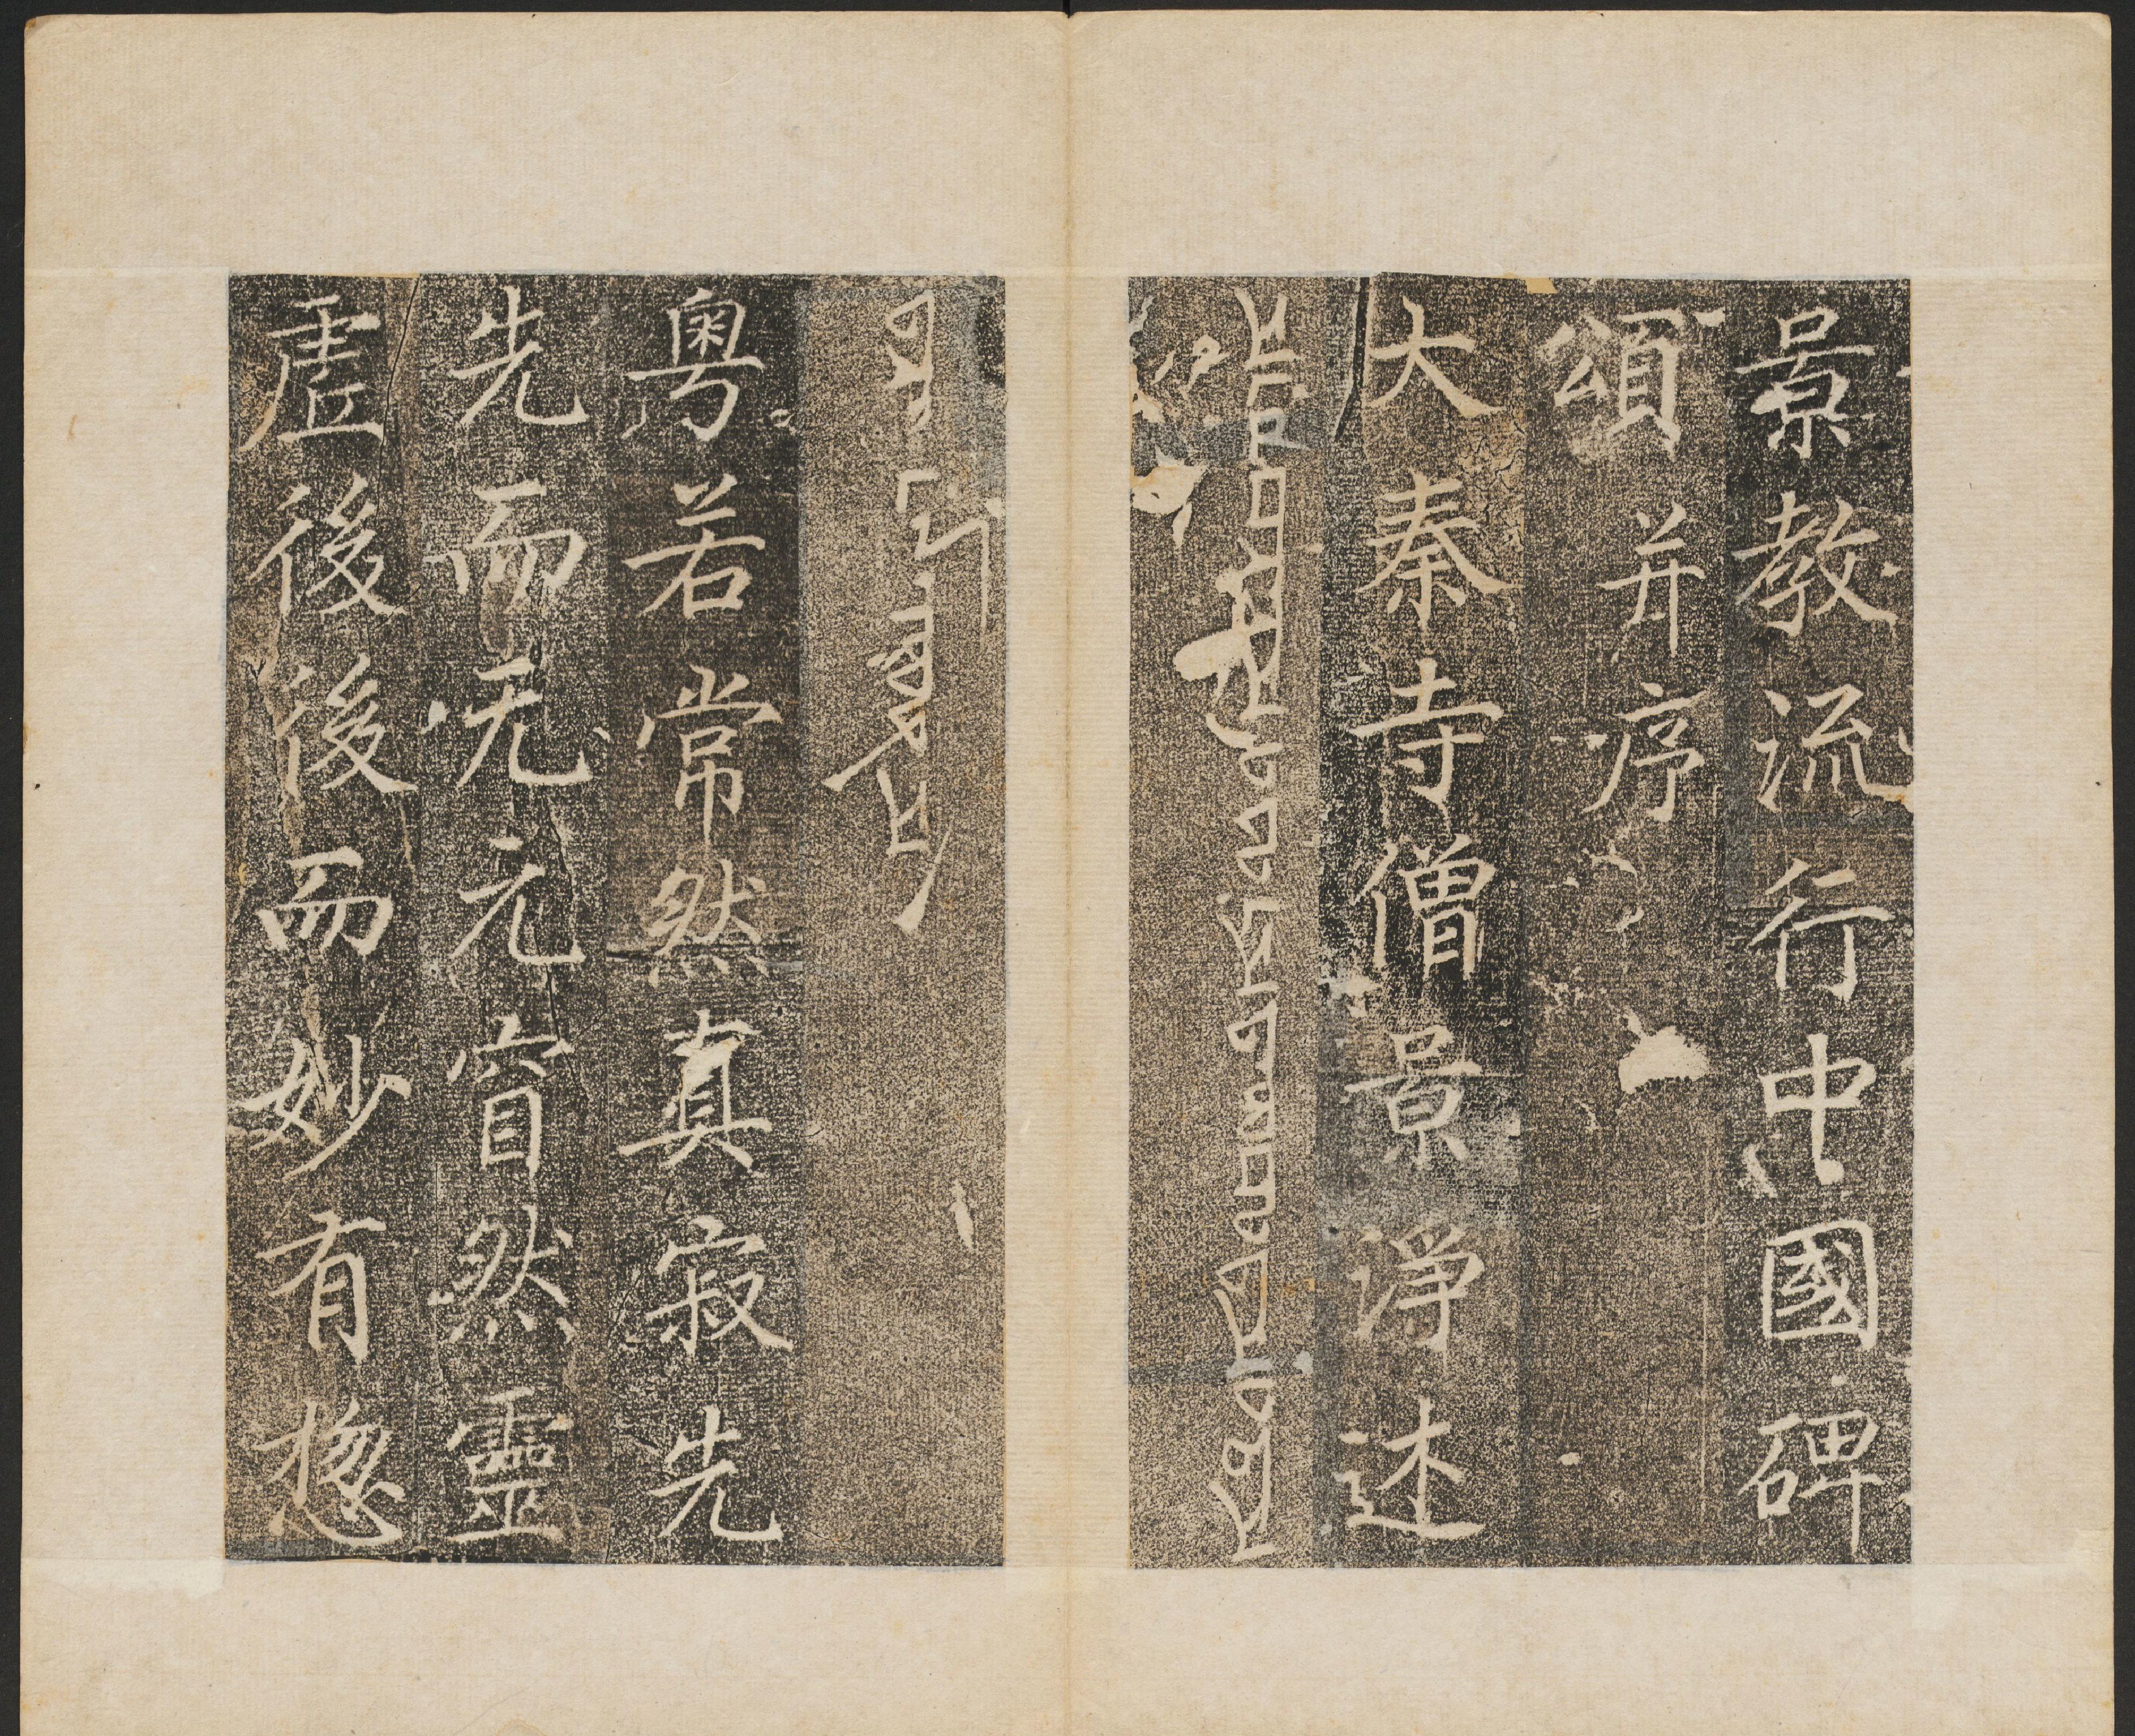 景教流行中國碑
頌并序
大秦寺僧景淨述
粤若常然真寂先
先而无元窅然靈
虛後後而妙有惣